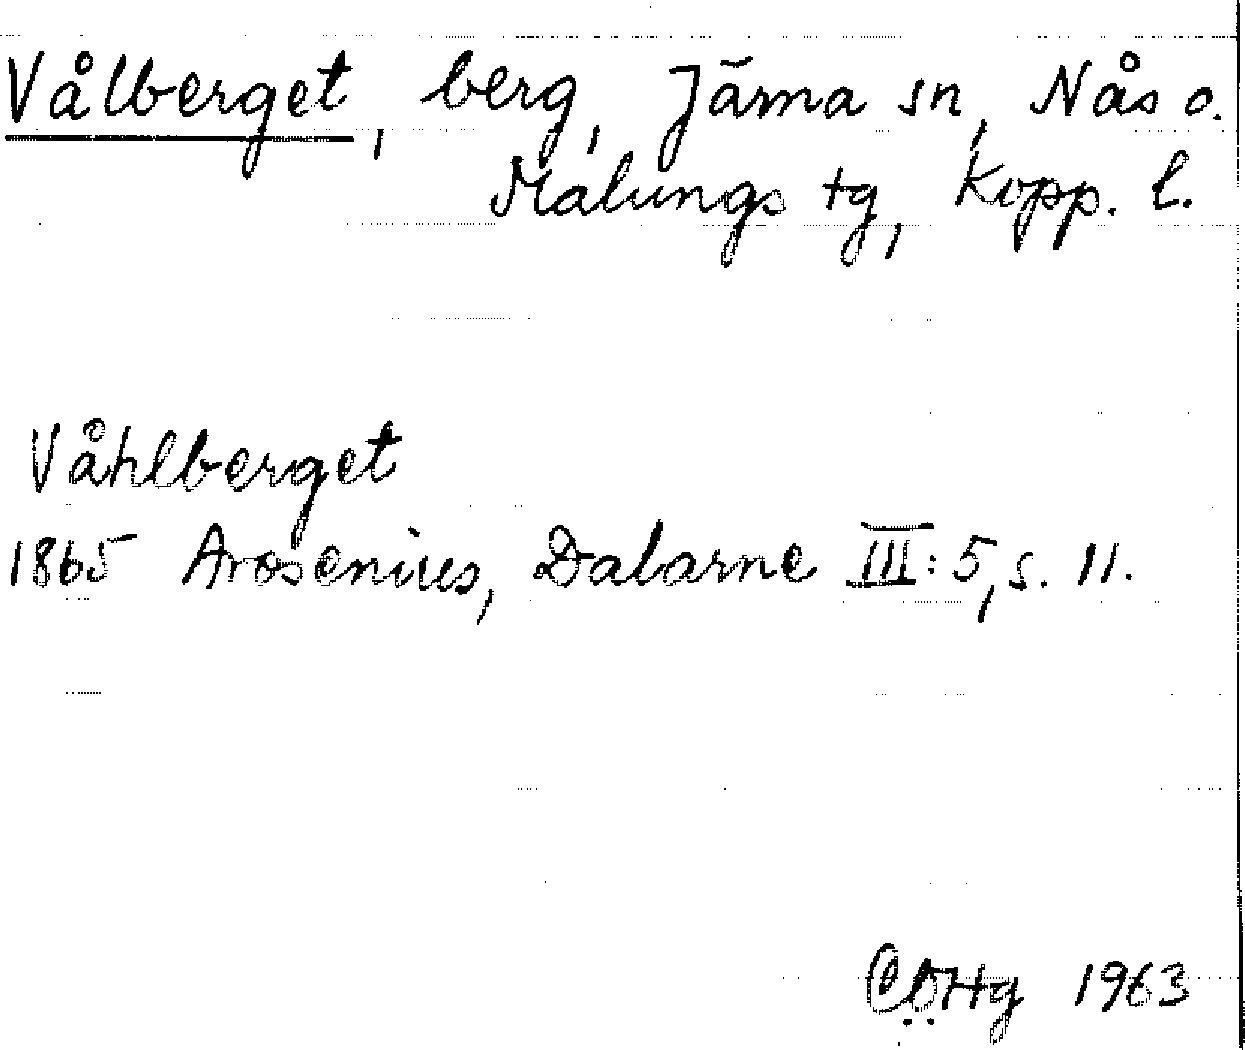 Vålberget, berg, Järna sn, Nås o.
Malungs tg, Kopp. l.
Våhlberget
1865 Arosenius, Dalarne III:5, s. 11.
1963